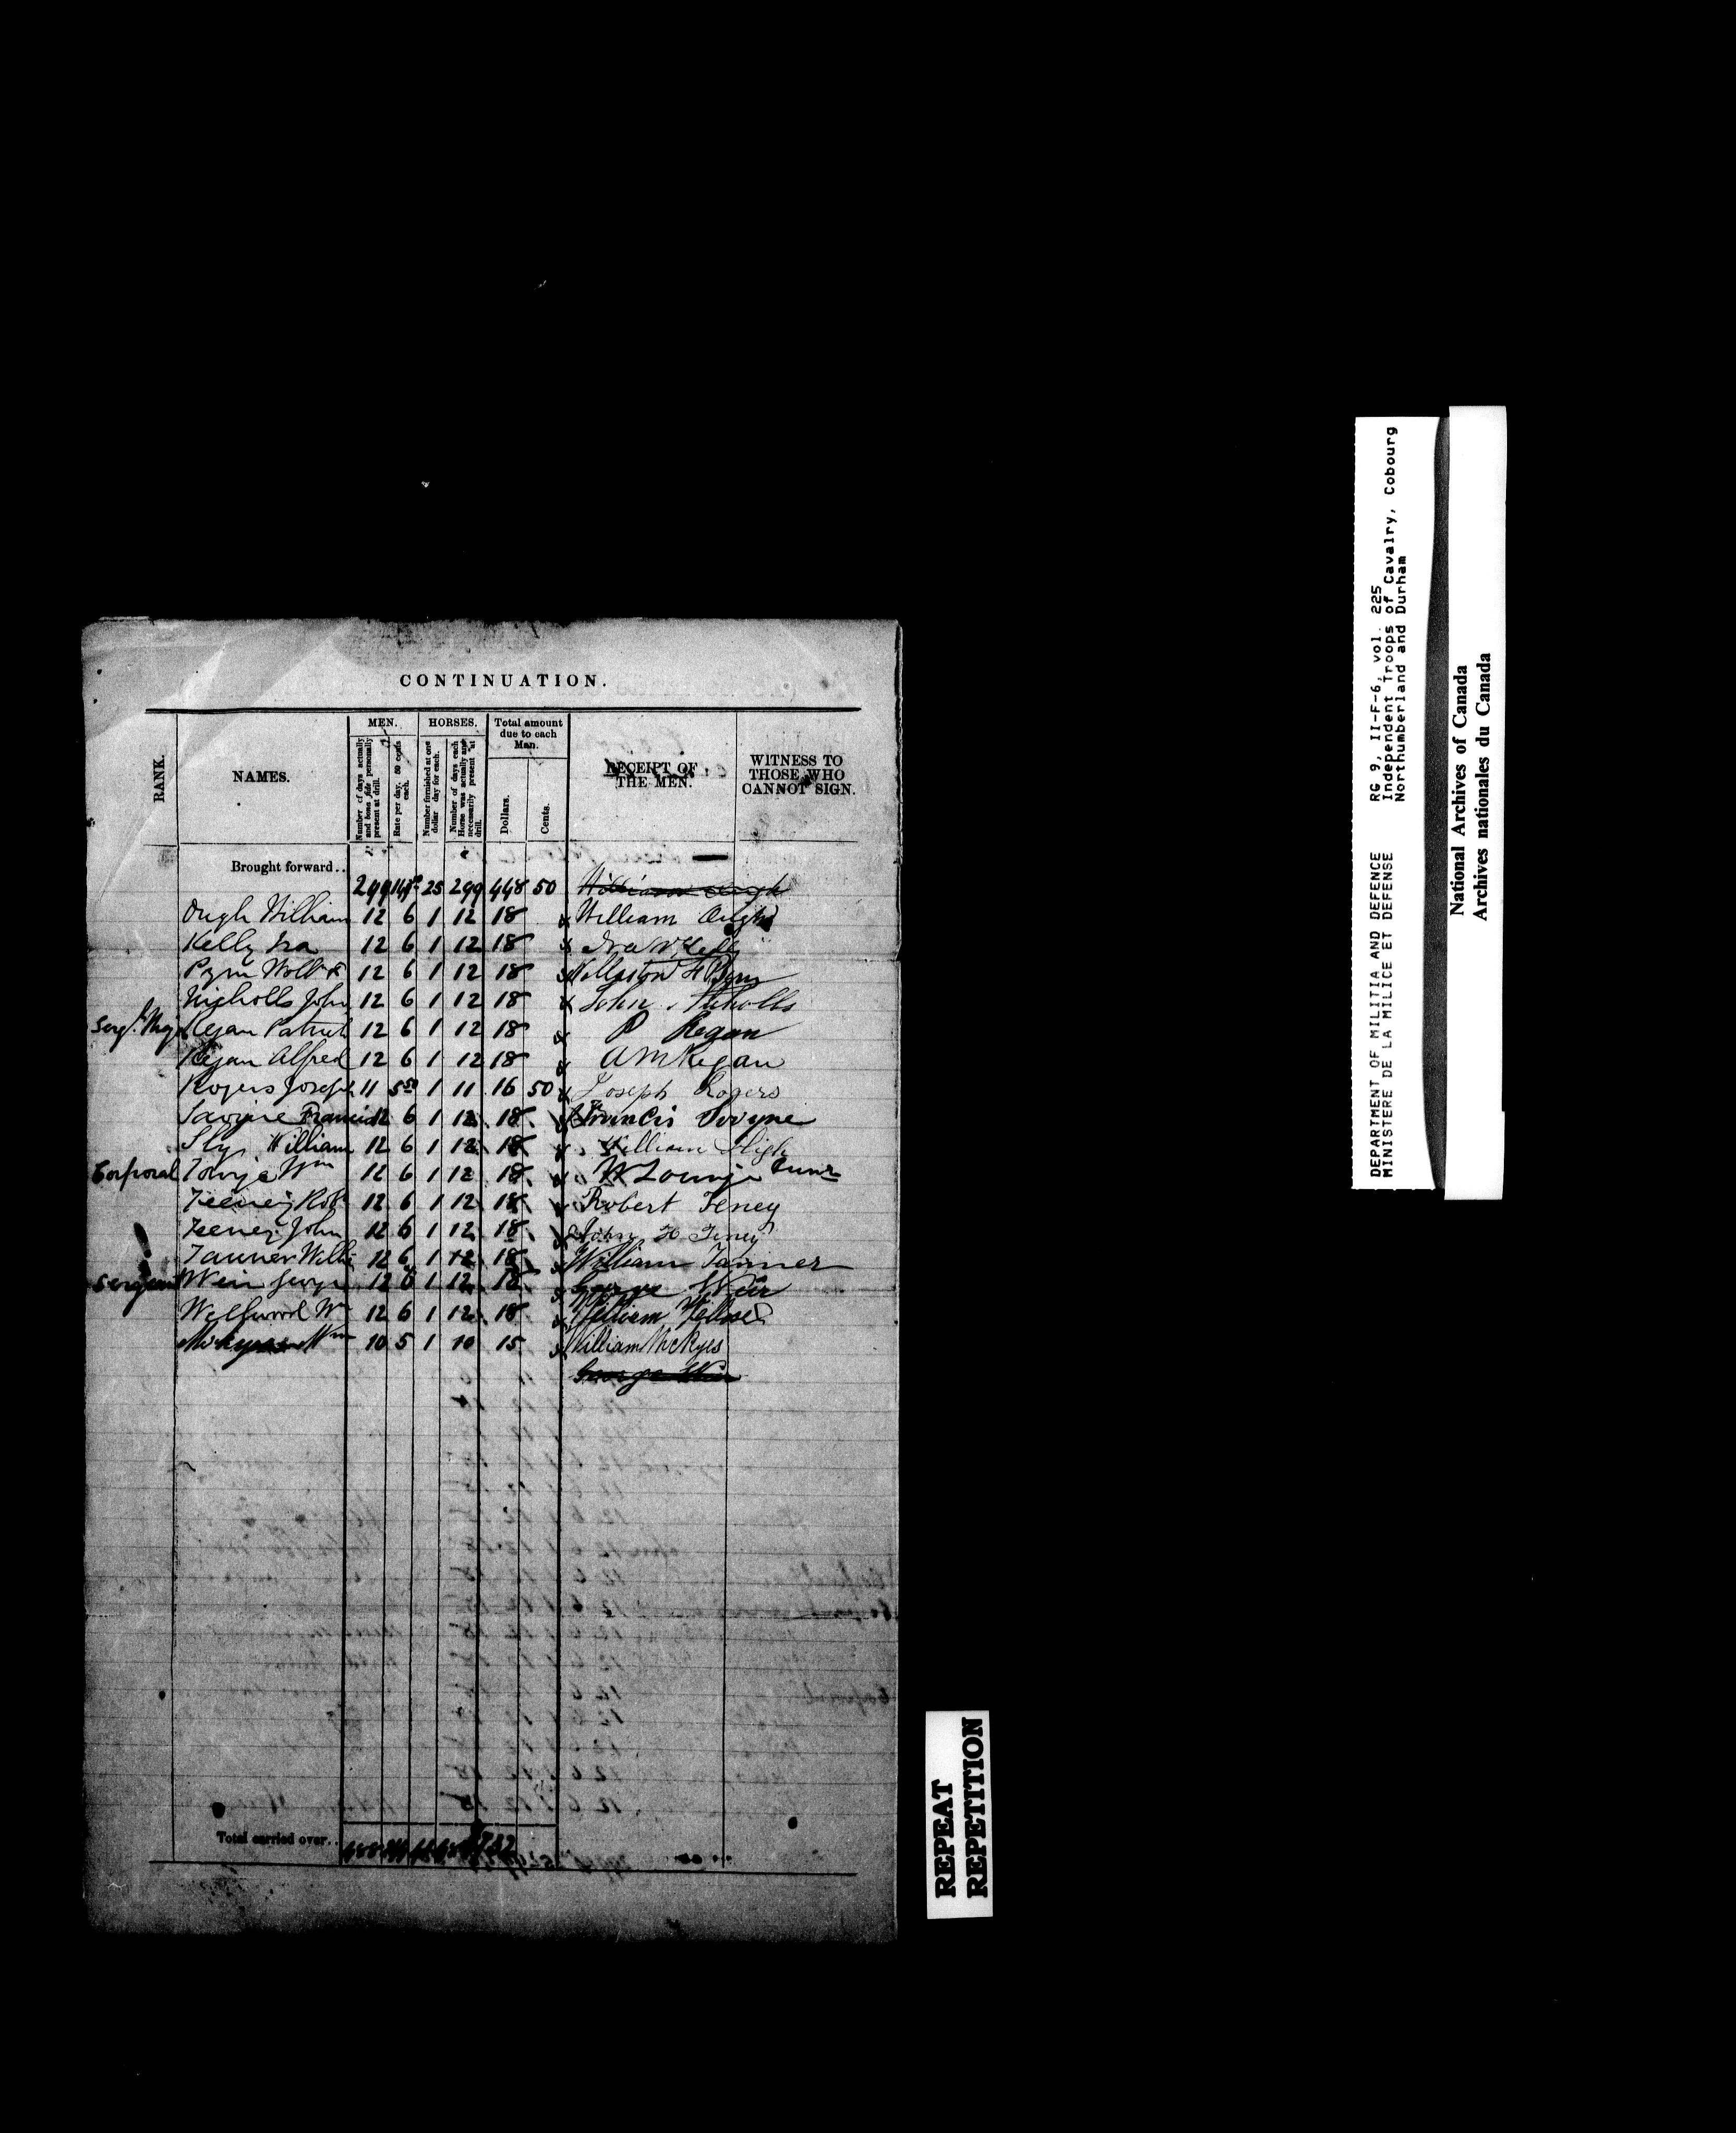 CONTINUATION.
RANK.
NAMES.
MEN.
Number of days actually and bona fide personally present at drill.
Rate per day, 50 cents each.
HORSES.
Number furnished at one dollar day for each.
Number of days each Horse was actually and necessarily present at drill.
Total amount due to each Man.
Dollars.
Cents.
RECEIPT OF THE MEN.
WITNESS TO THOSE WHO CANNOT SIGN.
Brought forward..
299 25 299 448 50
Ough William 12 6 1 12 18 x William Ough
Kelly Ira 12 6 1 12 18 x Ira
12 6 1 12 18
Nicholls John 12 6 1 12 18 x John Nicholls
Sergt. Maj Regan Patrick 12 6 1 12 18 x P Regan
Regan Alfred 12 6 1 12 18 x A M Regan
Rogers Joseph 11 5 50 1 11 16 50 x Joseph Rogers
Francis 12 6 1 12 18 x Francis
Sly William 12 6 1 12 18 x William Sligh
Corporal Wm 12 6 1 12 18 x W
Feeney Robt 12 6 1 12 18 x Robert Feney
Feney John 12 6 1 12 18 x John Feney
Tanner Willi 12 6 1 12 18 x William Tanner
Sergeant Weir George 12 6 1 12 18 x George Weir
Wellwood Wm 12 6 1 12 18 x William
Wm 10 5 1 10 15 x William McKyes
George Weir
Total carried over..
REPEAT
REPETITION
DEPARTMENT OF MILITIA AND DEFENCE
MINISTERE DE LA MILICE ET DEFENSE
RG 9, II-F-6, vol. 225
Independent Troops of Cavalry, Cobourg
Northumberland and Durham
National Archives of Canada
Archives nationales du Canada